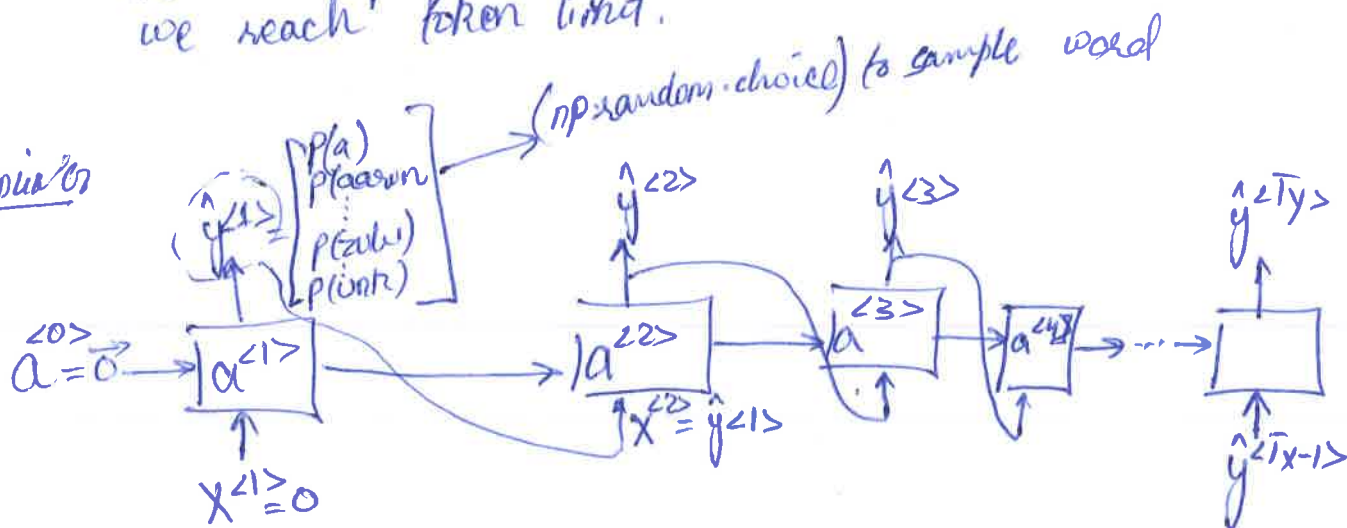 we reach token limit.
(np.random.choice) to sample word
p(a)
p(aaron
⋮
p(zulu)
p(unk)
ŷ<1> =
ŷ<2>
ŷ<3>
ŷ<Ty>
a<0> = 0⃗
a<1>
a<2>
a<3>
a<4>
...
x<1> = 0
x<2> = ŷ<1>
ŷ<Tx-1>